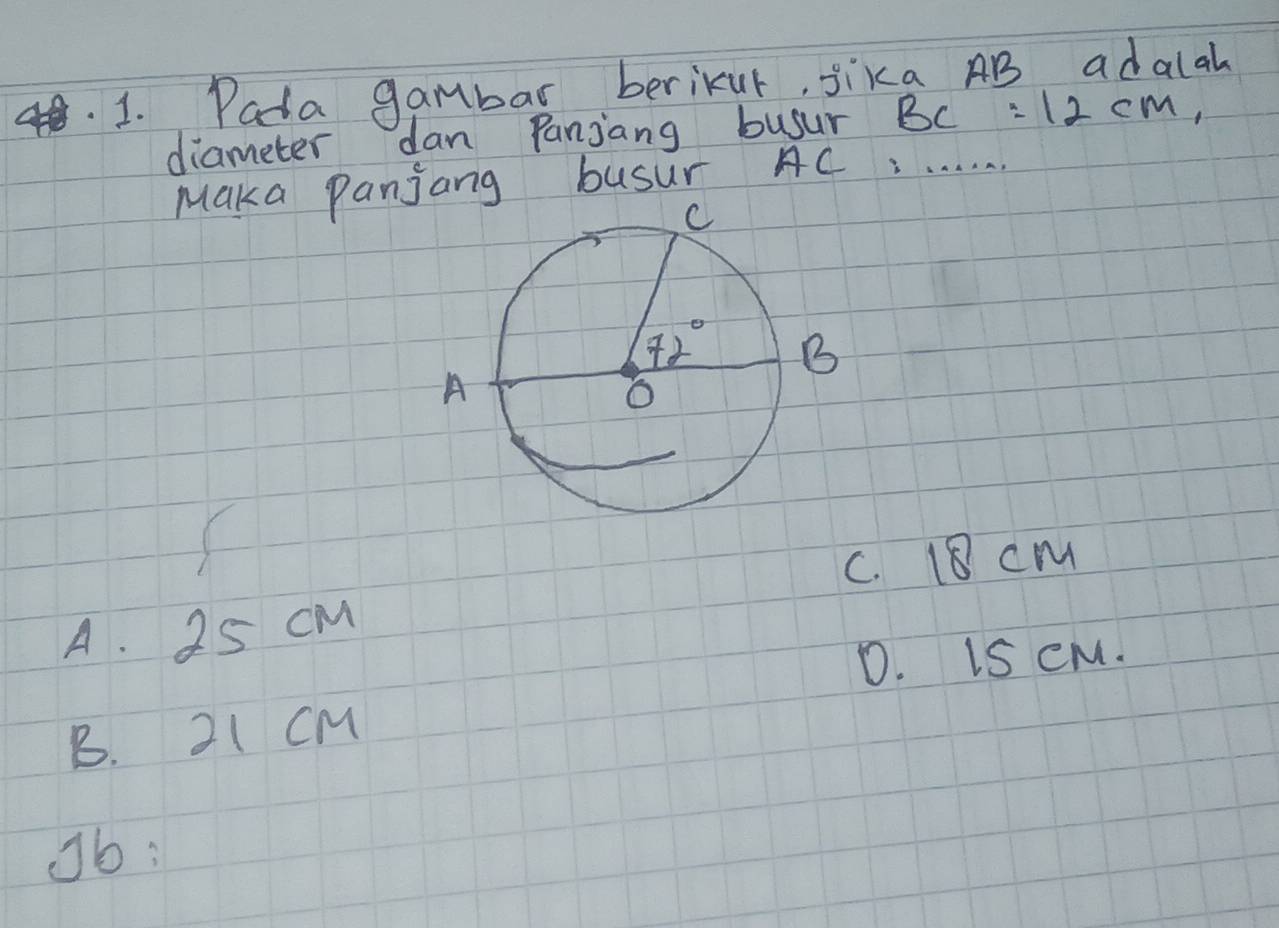 1. Pada gambar berikut, jika AB adalah
diameter dan Panjang busur BC = 12 cm,
Maka panjang busur AC : ......
C
72°
A
B
O
A. 25 CM
C. 18 CM
B. 21 CM
D. 15 CM.
Jb: